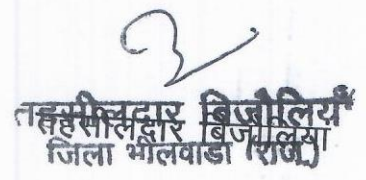 तहसीलदार बिजोलियाँ
तहसीलदार बिजोलिया
जिला भीलवाडा (राज.)